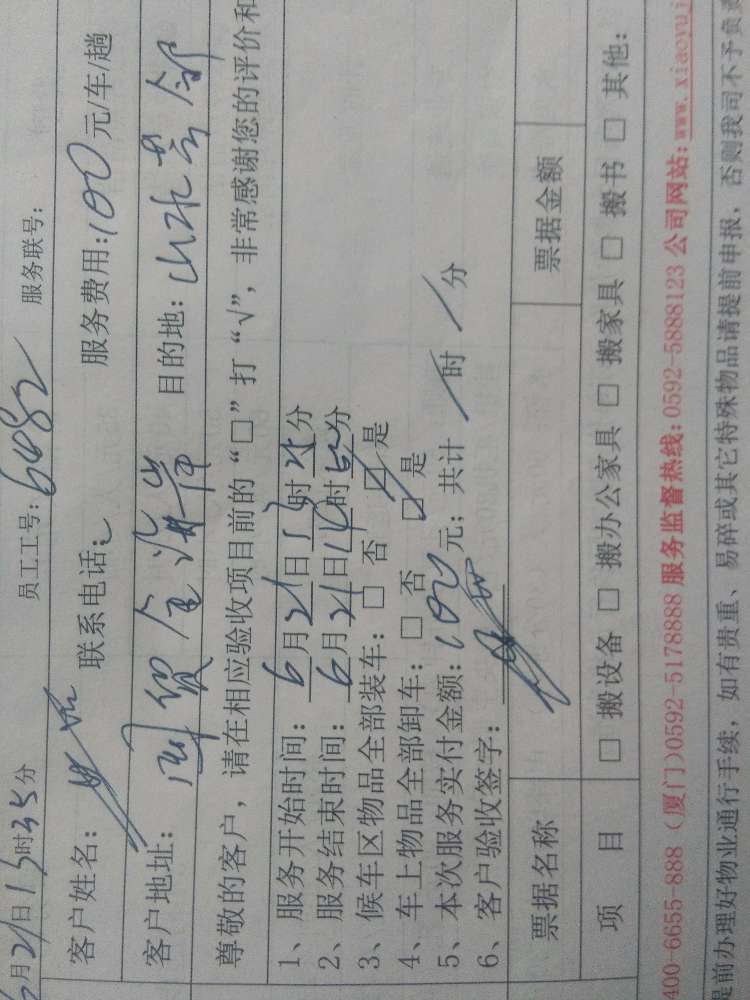 6月21日13时25分 员工工号:6482 服务联号:
客户姓名: 联系电话: 服务费用:100元/车/趟
客户地址: 国贸金海岸 目的地:山水芳邻
尊敬的客户，请在相应验收项目前的“□”打“√”，非常感谢您的评价和
1、服务开始时间: 6月21日13时25分
2、服务结束时间: 6月21日14时50分
3、候车区物品全部装车: □ 否 □ 是
4、车上物品全部卸车: □ 否 □ 是
5、本次服务实付金额: 100元; 共计 / 时 / 分
6、客户验收签字:
票据名称 票据金额
项 目 □ 搬设备 □ 搬办公家具 □ 搬家具 □ 搬书 □ 其他:
400-6655-888 (厦门)0592-5178888 服务监督热线:0592-5888123 公司网站:www.xiaoyuj
提前办理好物业通行手续，如有贵重、易碎或其它特殊物品请提前申报，否则我司不予负责